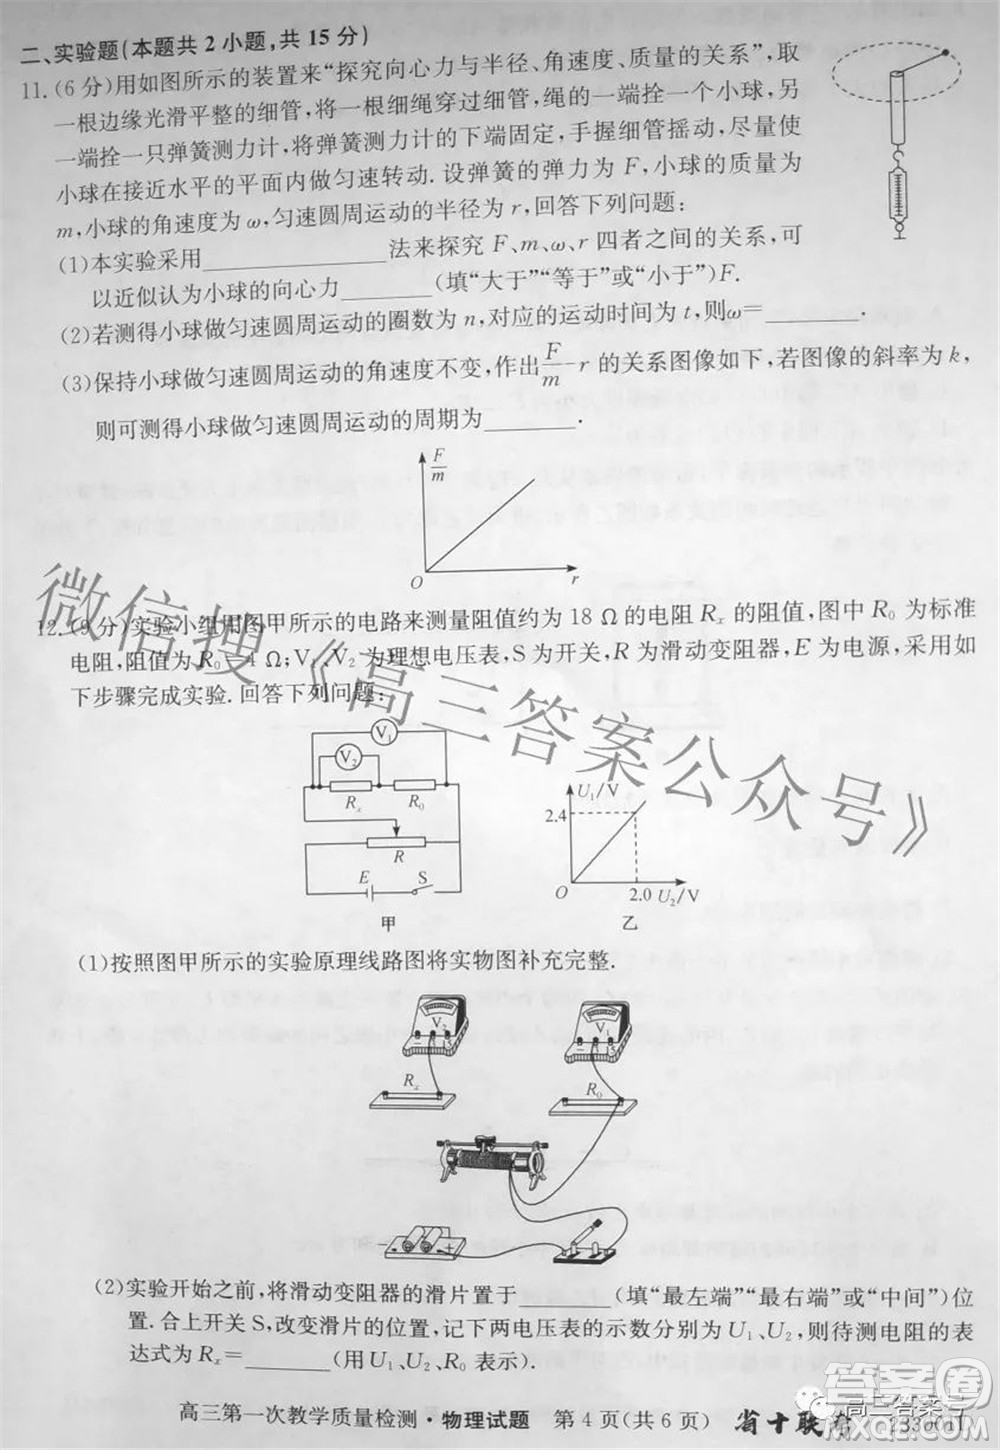 二、实验题(本题共2小题,共15分)
11.(6分)用如图所示的装置来“探究向心力与半径、角速度、质量的关系”,取
一根边缘光滑平整的细管,将一根细绳穿过细管,绳的一端拴一个小球,另
一端拴一只弹簧测力计,将弹簧测力计的下端固定,手握细管摇动,尽量使
小球在接近水平的平面内做匀速转动.设弹簧的弹力为F,小球的质量为
m,小球的角速度为ω,匀速圆周运动的半径为r,回答下列问题:
(1)本实验采用________法来探究F、m、ω、r四者之间的关系,可
以近似认为小球的向心力________(填“大于”“等于”或“小于”)F.
(2)若测得小球做匀速圆周运动的圈数为n,对应的运动时间为t,则ω=________.
(3)保持小球做匀速圆周运动的角速度不变,作出F/m-r的关系图像如下,若图像的斜率为k,
则可测得小球做匀速圆周运动的周期为________.
F/m
O r
12.(9分)实验小组用图甲所示的电路来测量阻值约为18 Ω的电阻Rx的阻值,图中R0为标准
电阻,阻值为R0=4 Ω;V1、V2为理想电压表,S为开关,R为滑动变阻器,E为电源,采用如
下步骤完成实验.回答下列问题:
V1
V2
Rx R0
R
E S
甲
U1/V
2.4
O 2.0 U2/V
乙
(1)按照图甲所示的实验原理线路图将实物图补充完整.
V2 V1
− 3 15 − 3 15
Rx R0
− +
(2)实验开始之前,将滑动变阻器的滑片置于________(填“最左端”“最右端”或“中间”)位
置.合上开关S,改变滑片的位置,记下两电压表的示数分别为U1、U2,则待测电阻的表
达式为Rx=________(用U1、U2、R0表示).
高三第一次教学质量检测·物理试题 第4页(共6页) 省十联考
微信搜《高三答案公众号》
高三答案号
答案圈